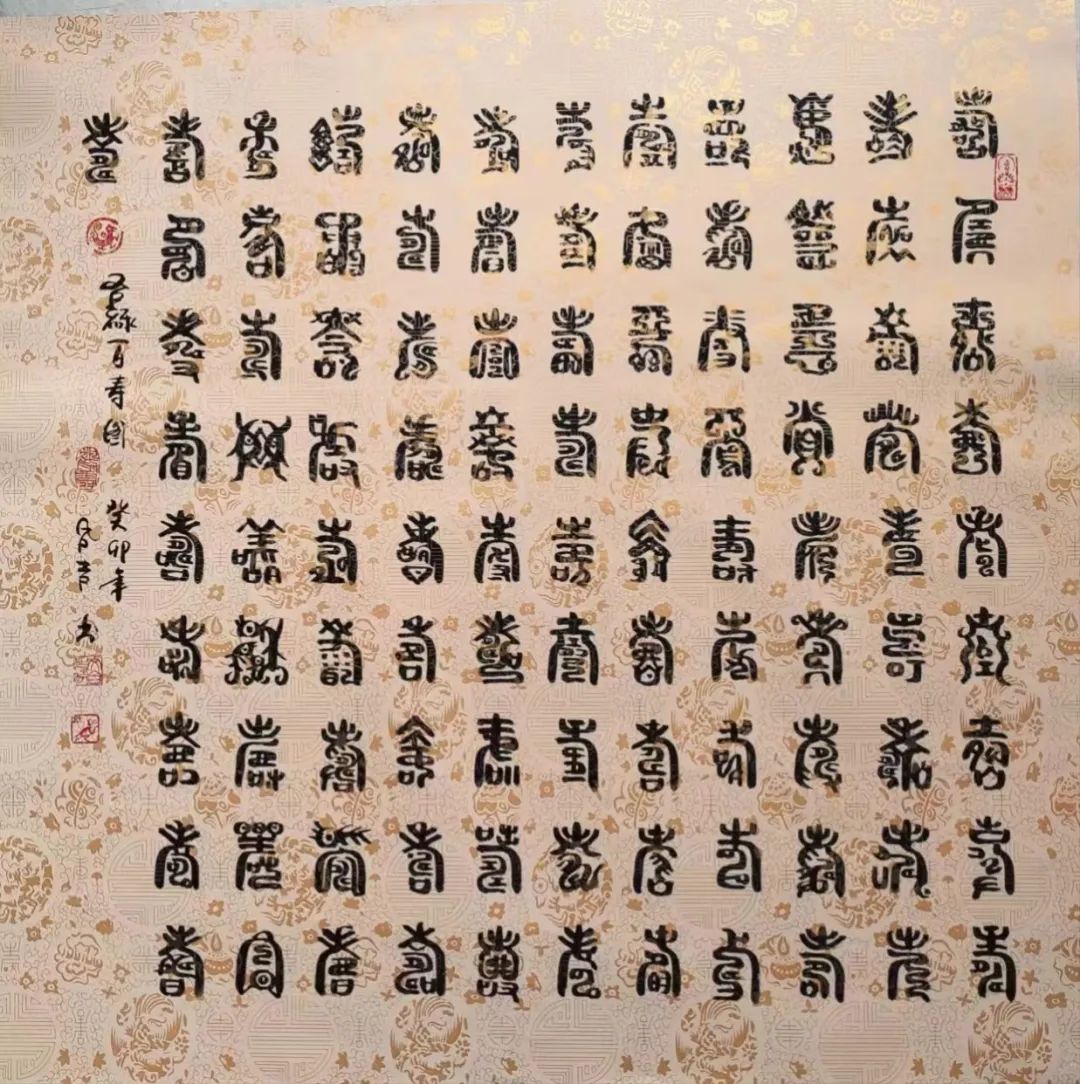 壽壽壽壽壽壽壽壽壽
壽壽壽壽壽壽壽壽壽
壽壽壽壽壽壽壽壽壽
壽壽壽壽壽壽壽壽壽
壽壽壽壽壽壽壽壽壽
壽壽壽壽壽壽壽壽壽
壽壽壽壽壽壽壽壽壽
壽壽壽壽壽壽壽壽壽
壽壽壽壽壽壽壽壽壽
壽壽壽壽壽壽壽壽壽
壽壽壽壽壽壽壽壽壽
壽
百寿图
癸卯年
书